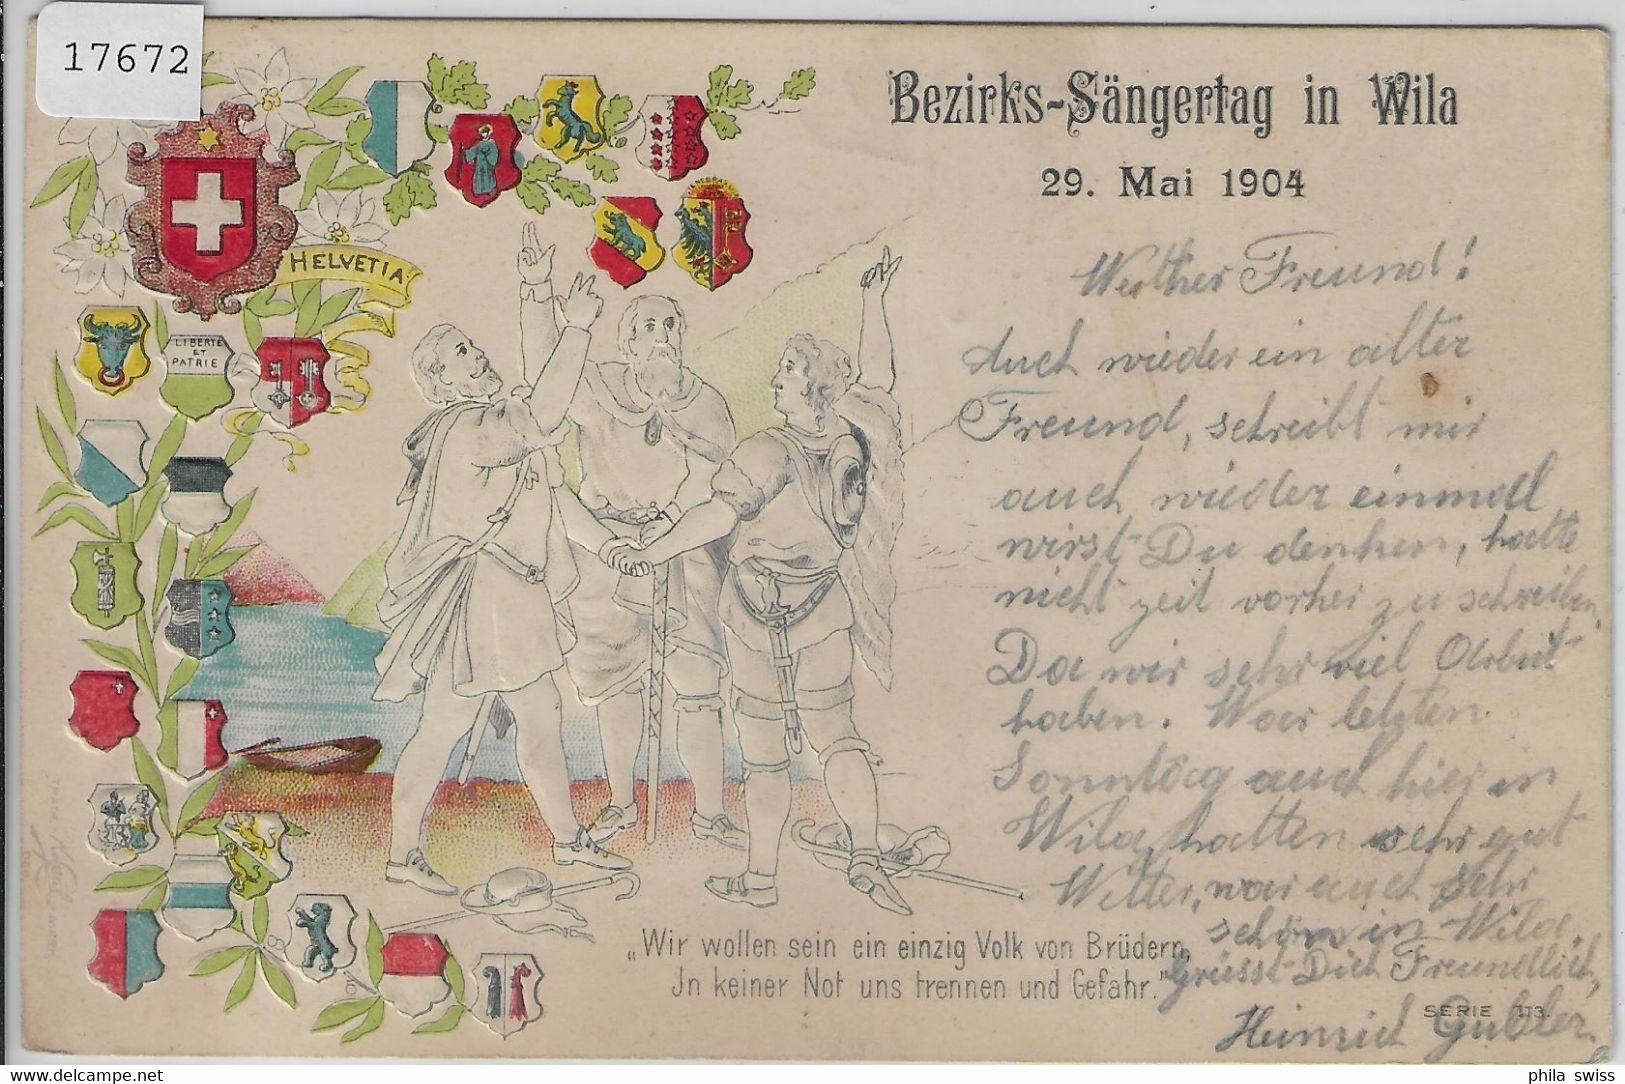 17672
Bezirks-Sängertag in Wila
29. Mai 1904
HELVETIA
LIBERTÉ
ET
PATRIE
Werther Freund!
Auch wieder ein alter
Freund, schreibt mir
auch wieder einmal
wirst Du denken, hatte
nicht zeit vorher zu schreiben,
Da wir sehr viel Arbeit
haben. War letzten
Sonntag auch hier in
Wila, hatten sehr gut
Wetter, war auch sehr
schön in Wila.
Grüsst Dich Freundlich,
Heinrich Gubler.
„Wir wollen sein ein einzig Volk von Brüdern,
Jn keiner Not uns trennen und Gefahr."
SERIE 113.
delcampe.net
phila swiss